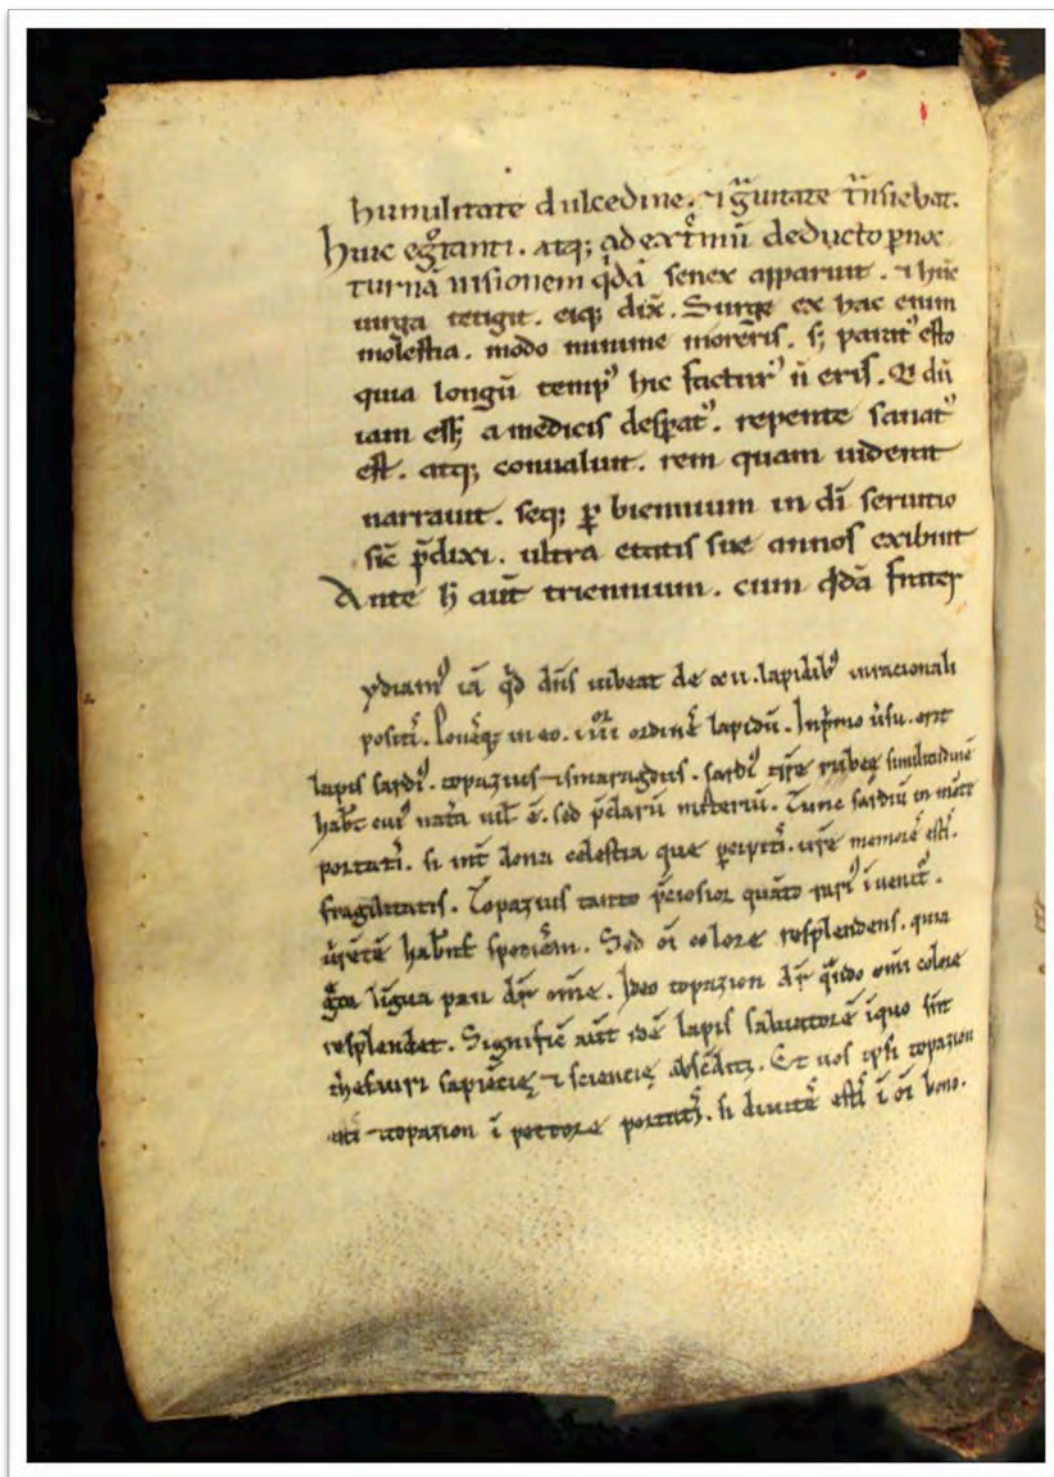 humilitate dulcedine. ⁊ gͣuitate tͣnsiebat.
huic egͦtanti. atq; ad extͤmū deducto ꝑ noc
turnā uisionem qͥdā senex apparuit. ⁊ hūc
uirga tetigit. eiq; dix̄. Surge ex hac enim
molestia. modo minime morēris. s; parat᾽ esto
quia longū temp᾽ hic factur᾽ ñ eris. Q dū
iam eēt a medicis desꝑat᾽. repente sanat᾽
est. atq; conualuit. rem quam uiderit
narrauit. seq; ꝑ biennium in dī seruitio
sic̄ p̄dixi. ultra etatis sue annos exibuit
Ante h̄ aūt triennium. cum qͥdā frater
ydiam᾽ iā qͥd dn̄s iubeat de xii. lapidib᾽ in racionali
positi. Ponēq; in eo. iiiiͦͬ ordinē lapidū. In pͥmo ūsu. erit
lapis sardi᾽. topazius ⁊ smaragdus. sardi᾽ tr̄e rubeę similitudinē
hab̄t cui᾽ nat̄a uil̄ ē. sed p̄clarū misteriū. Tunc sardiū in
portati. si int̄ dona celestia que ꝑcipiti. ur̄e memorē esti.
fragilitatis. Topazius tanto p̄ciosior quāto rari᾽ īuenit.
habēt speciem. Sed oī colore resplendens. quia
gͣca līgua pan dr̄ om̄e. Ideo topazion dr̄ qͣndo omī colore
resplendet. Signific̄ aūt idē lapis saluatorē ī quo sūt
thesauri sapiētię ⁊ scientię abscōditi. Et uos ipsi topazion
⁊ topazion ī pectore portatis. si diuitē esti ī oī bono.